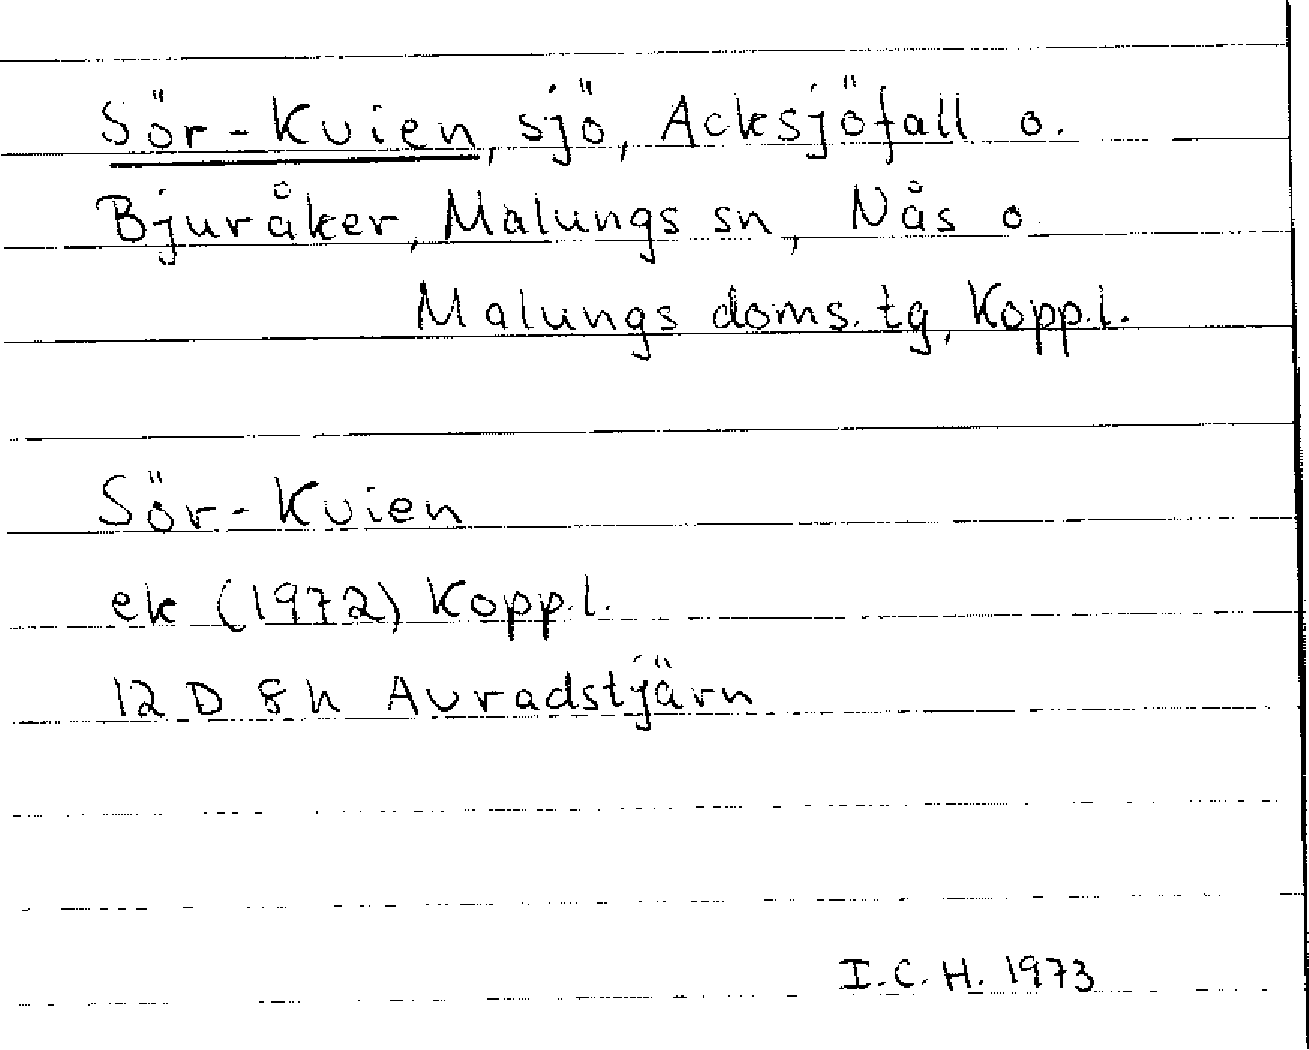 Sör-Kvien, sjö, Acksjöfall o.
Bjuråker, Malungs sn, Nås o
Malungs doms.tg, Kopp.l.
Sör-Kvien
ek (1972) Kopp.l.
12 D 8 h Avradstjärn
I.C.H. 1973